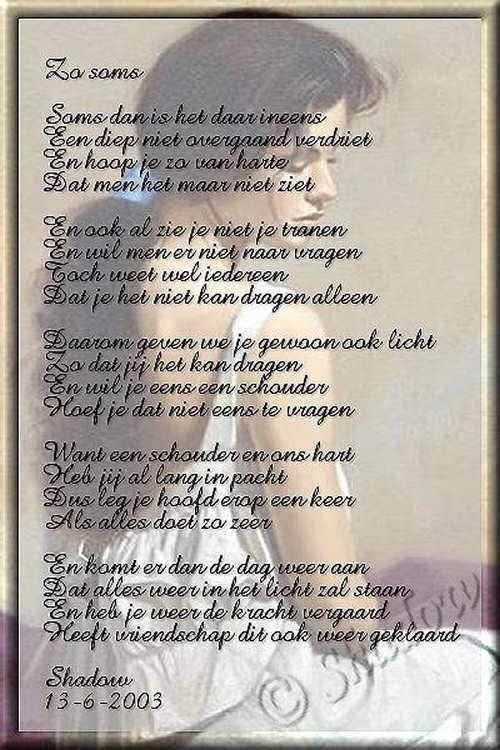 Zo soms
Soms dan is het daar ineens
Een diep niet overgaand verdriet
En hoop je zo van harte
Dat men het maar niet ziet
En ook al zie je niet je tranen
En wil men er niet naar vragen
Toch weet wel iedereen
Dat je het niet kan dragen alleen
Daarom geven we je gewoon ook licht
Zo dat jij het kan dragen
En wil je eens een schouder
Hoef je dat niet eens te vragen
Want een schouder en ons hart
Heb jij al lang in pacht
Dus leg je hoofd erop een keer
Als alles doet zo zeer
En komt er dan de dag weer aan
Dat alles weer in het licht zal staan
En heb je weer de kracht vergaard
Heeft vriendschap dit ook weer geklaard
Shadow
13-6-2003
© Shadow